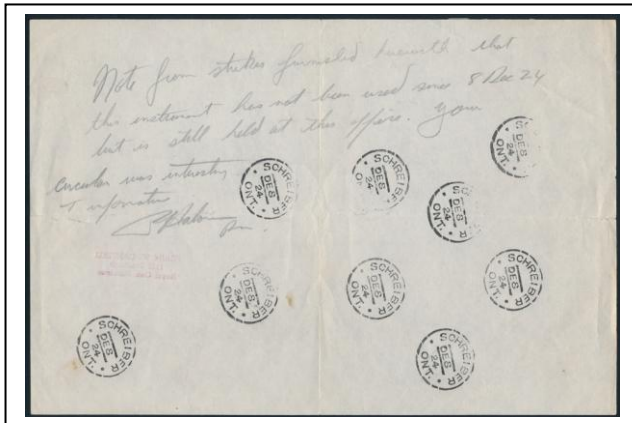 Note from strikes furnished herewith that
this instrument has not been used since 8 Dec 24
but is still held at this office. Your
circular was interesting
+ informative
SCHREIBER
DE 8
24
ONT.
SCHREIBER
DE 8
24
ONT.
SCHREIBER
DE 8
24
ONT.
SCHREIBER
DE 8
24
ONT.
SCHREIBER
DE 8
24
ONT.
SCHREIBER
DE 8
24
ONT.
SCHREIBER
DE 8
24
ONT.
SCHREIBER
DE 8
24
ONT.
SCHREIBER
DE 8
24
ONT.